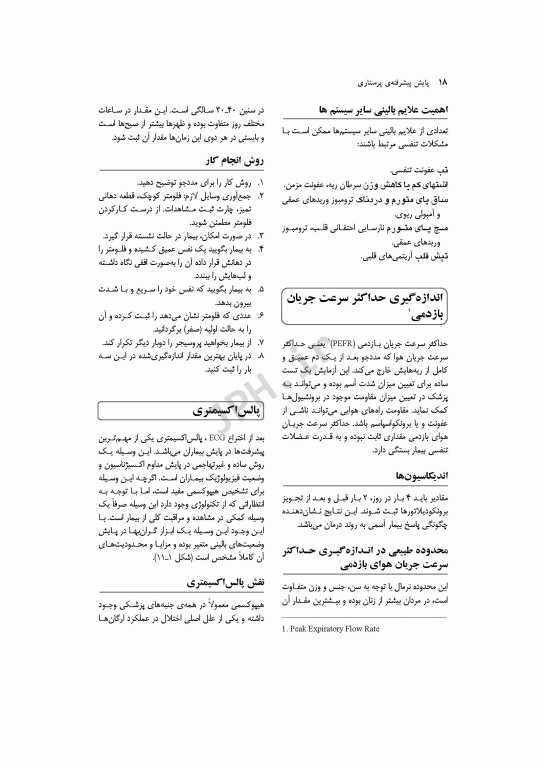 ۱۸ پایش پیشرفته‌ی پرستاری
اهمیت علایم بالینی سایر سیستم ها
تعدادی از علایم بالینی سایر سیستم‌ها ممکن است با
مشکلات تنفسی مرتبط باشند:
تب عفونت تنفسی.
اشتهای کم یا کاهش وزن سرطان ریه، عفونت مزمن.
ساق پای متورم و دردناک ترومبوز وریدهای عمقی
و آمبولی ریوی.
مچ پای متورم نارسایی احتقانی قلب، ترومبوز
وریدهای عمقی.
تپش قلب آریتمی‌های قلبی.
اندازه‌گیری حداکثر سرعت جریان
بازدمی۱
حداکثر سرعت جریان بازدمی (PEFR) یعنی حداکثر
سرعت جریان هوا که مددجو بعد از یک دم عمیق و
کامل از ریه‌هایش خارج می‌کند. این آزمایش یک تست
ساده برای تعیین میزان شدت آسم بوده و می‌تواند به
پزشک در تعیین میزان مقاومت موجود در برونشیول‌ها
کمک نماید. مقاومت راه‌های هوایی می‌تواند ناشی از
عفونت و یا برونکواسپاسم باشد. حداکثر سرعت جریان
هوای بازدمی مقداری ثابت نبوده و به قدرت عضلات
تنفسی بیمار بستگی دارد.
اندیکاسیون‌ها
مقادیر باید ۴ بار در روز، ۲ بار قبل و بعد از تجویز
برونکودیلاتورها ثبت شوند. این نتایج نشان‌دهنده
چگونگی پاسخ بیمار آسمی به روند درمان می‌باشد.
محدوده طبیعی در اندازه‌گیری حداکثر
سرعت جریان هوای بازدمی
این محدوده نرمال با توجه به سن، جنس و وزن متفاوت
است، در مردان بیشتر از زنان بوده و بیشترین مقدار آن
1. Peak Expiratory Flow Rate
در سنین ۴۰ـ۳۰ سالگی است. این مقدار در ساعات
مختلف روز متفاوت بوده و ظهرها بیشتر از صبح‌ها است
و بایستی در هر دوی این زمان‌ها مقدار آن ثبت شود.
روش انجام کار
۱. روش کار را برای مددجو توضیح دهید.
۲. جمع‌آوری وسایل لازم: فلومتر کوچک، قطعه دهانی
تمیز، چارت ثبت مشاهدات. از درست کارکردن
فلومتر مطمئن شوید.
۳. در صورت امکان، بیمار در حالت نشسته قرار گیرد.
۴. به بیمار بگویید یک نفس عمیق کشیده و فلومتر را
در دهانش قرار داده آن را به‌صورت افقی نگاه داشته
و لب‌هایش را ببندد.
۵. به بیمار بگویید که نفس خود را سریع و با شدت
بیرون بدهد.
۶. عددی که فلومتر نشان می‌دهد را ثبت کرده و آن
را به حالت اولیه (صفر) برگردانید.
۷. از بیمار بخواهید پروسیجر را دوبار دیگر تکرار کند.
۸. در پایان بهترین مقدار اندازه‌گیری‌شده در این سه
بار را ثبت کنید.
پالس‌اکسیمتری
بعد از اختراع ECG ، پالس‌اکسیمتری یکی از مهم‌ترین
پیشرفت‌ها در پایش بیماران می‌باشد. این وسیله یک
روش ساده و غیرتهاجمی در پایش مداوم اکسیژناسیون و
وضعیت فیزیولوژیک بیماران است. اگرچه این وسیله
برای تشخیص هیپوکسمی مفید است، اما با توجه به
انتظاراتی که از تکنولوژی وجود دارد این وسیله صرفاً یک
وسیله کمکی در مشاهده و مراقبت کلی از بیمار است. با
این وجود این وسیله یک ابزار گران‌بها در پایش
وضعیت‌های بالینی متغیر بوده و مزایا و محدودیت‌های
آن کاملاً مشخص است (شکل ۱ـ۱۱).
نقش پالس‌اکسیمتری
هیپوکسمی معمولاً در همه‌ی جنبه‌های پزشکی وجود
داشته و یکی از علل اصلی اختلال در عملکرد ارگان‌ها
JPH.ir